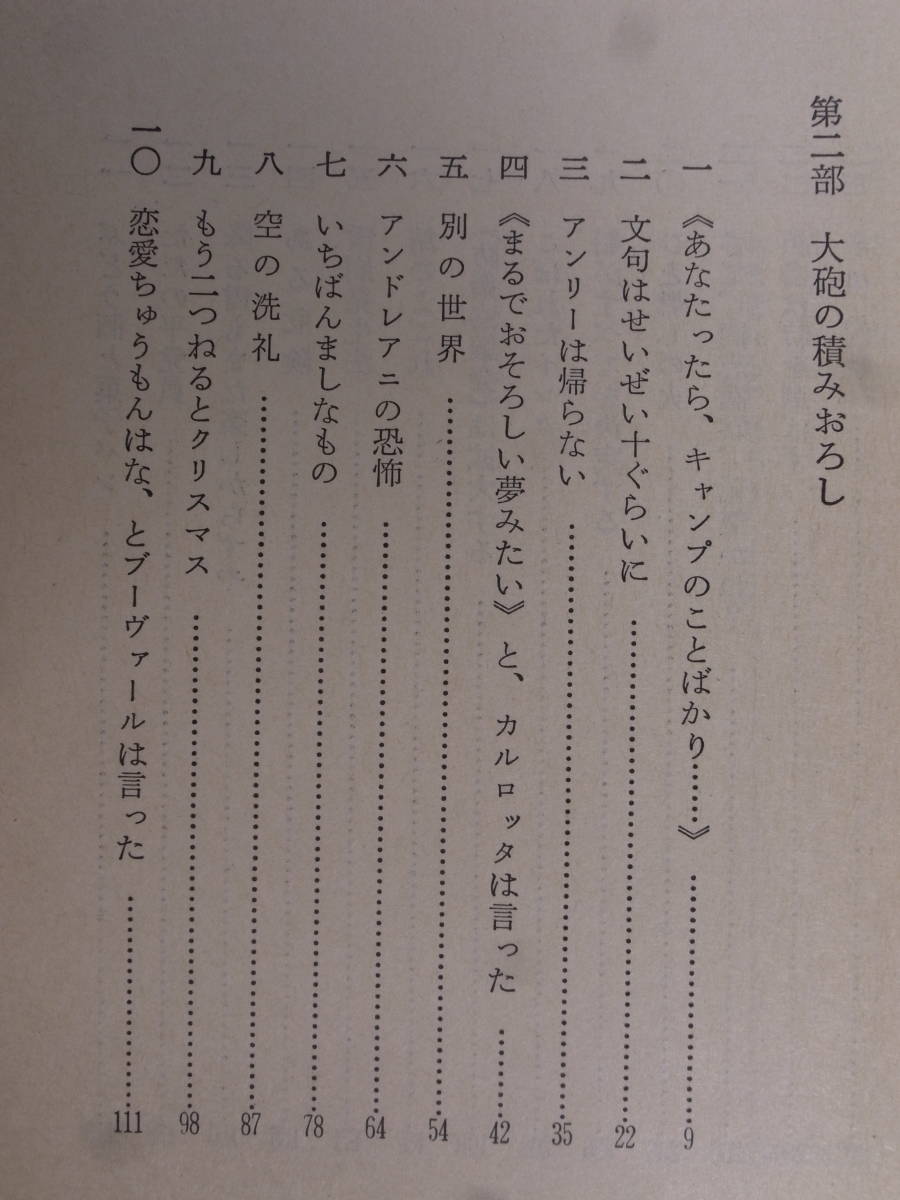 第二部　大砲の積みおろし
一　《あなたったら、キャンプのことばかり……》…………9
二　文句はせいぜい十ぐらいに…………22
三　アンリーは帰らない…………35
四　《まるでおそろしい夢みたい》と、カルロッタは言った…………42
五　別の世界…………54
六　アンドレアニの恐怖…………64
七　いちばんましなもの…………78
八　空の洗礼…………87
九　もう二つねるとクリスマス…………98
一〇　恋愛ちゅうもんはな、とブーヴァールは言った…………111